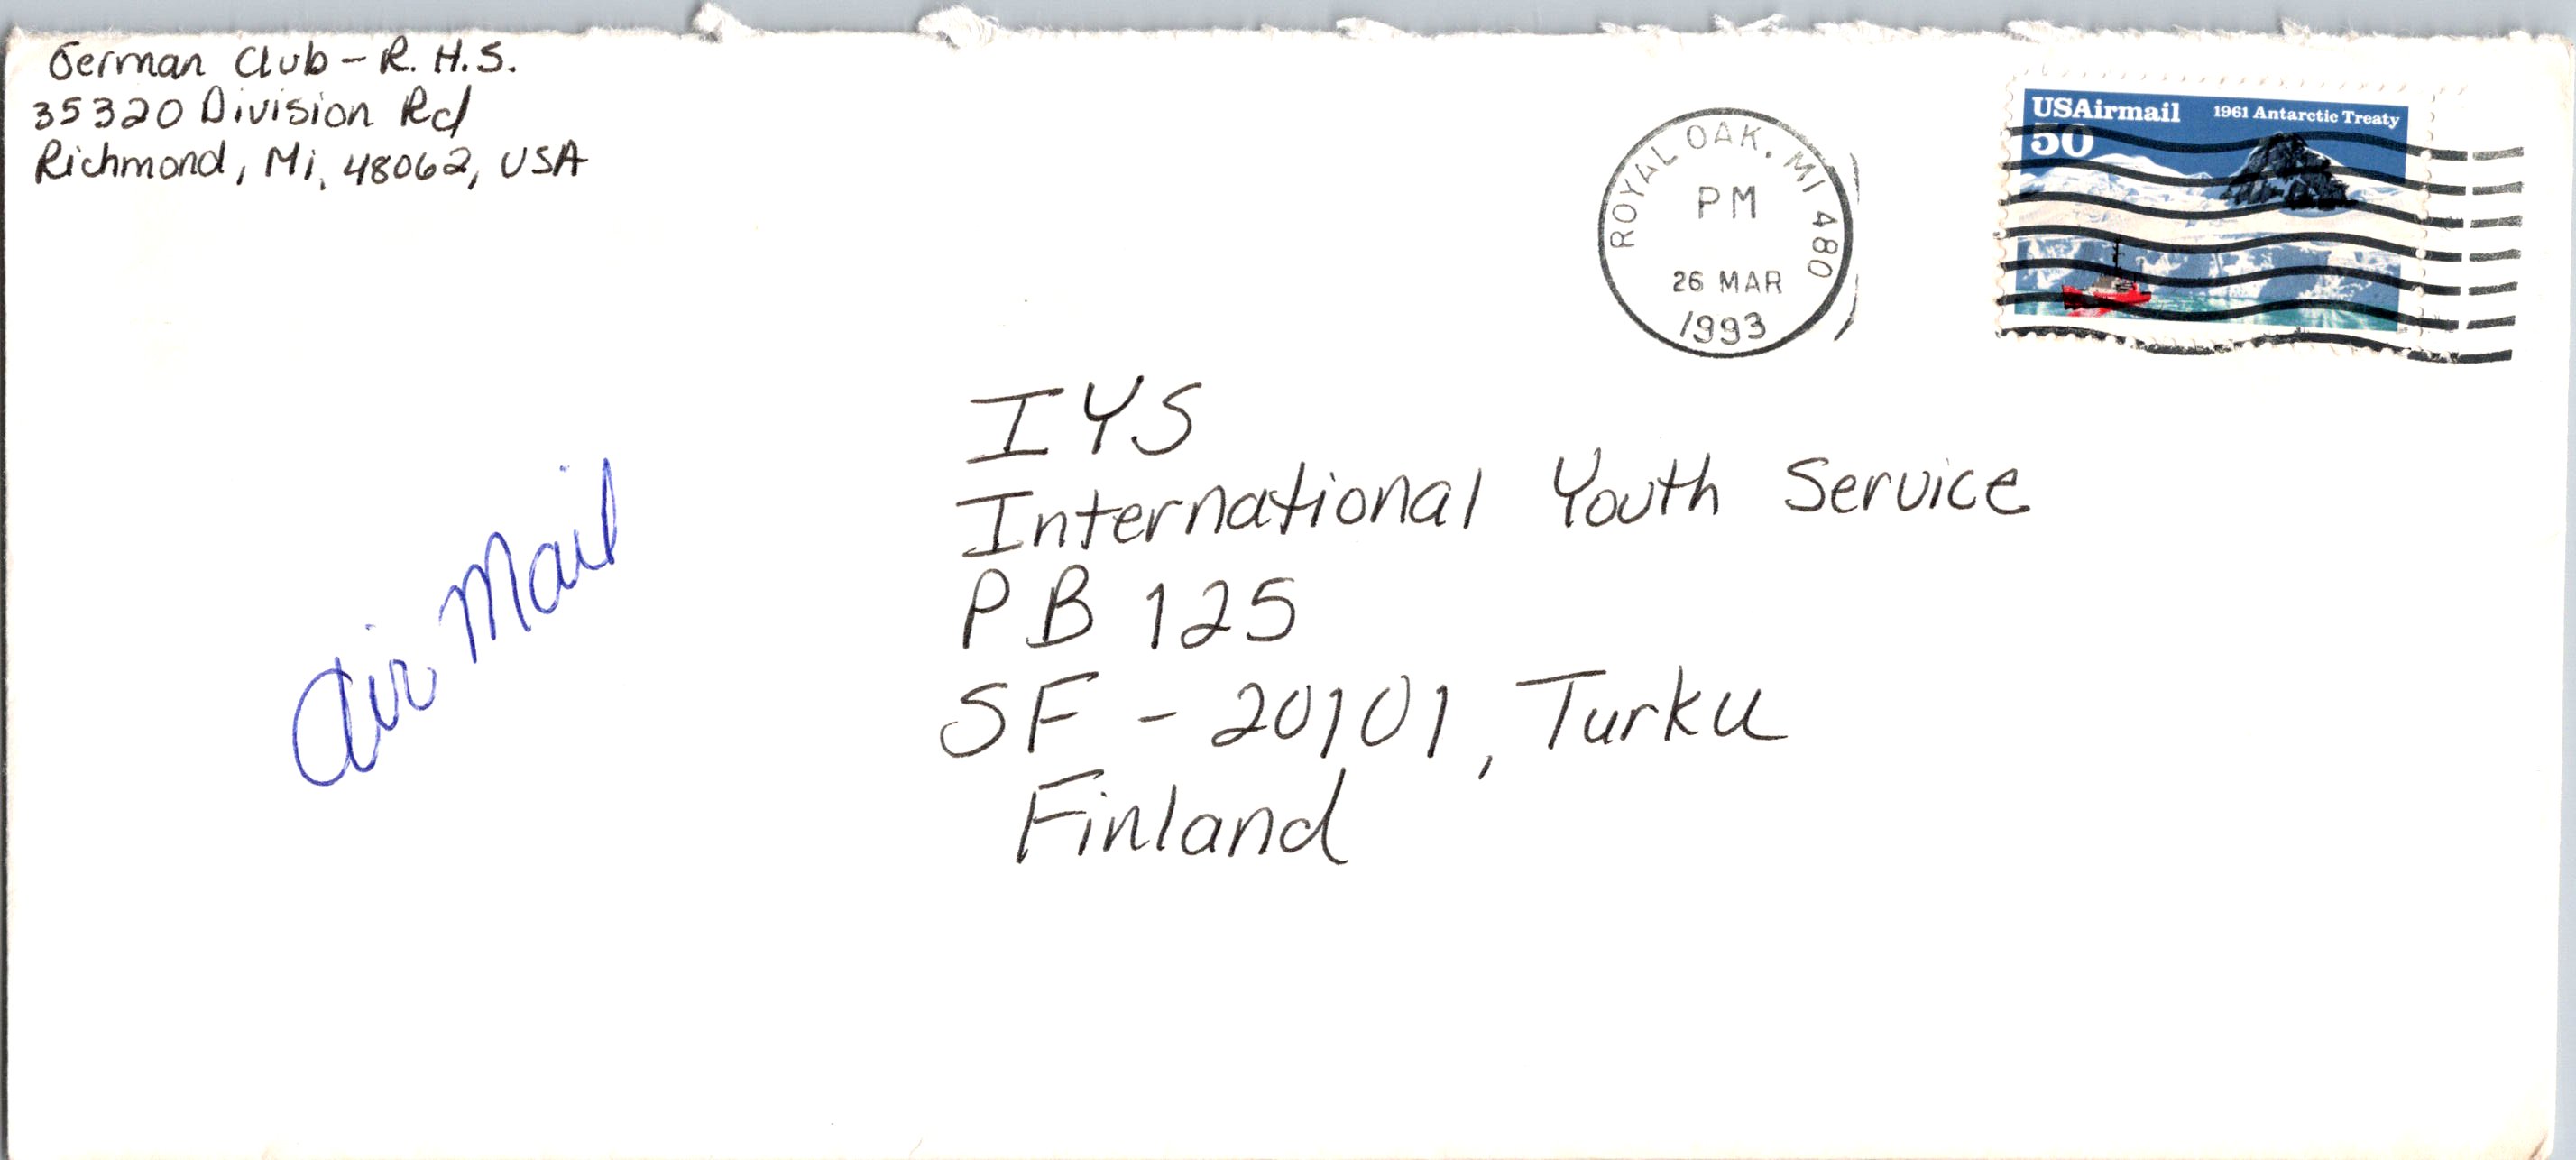 German Club - R. H. S.
35320 Division Rd
Richmond, Mi, 48062, USA
ROYAL OAK, MI 480
PM
26 MAR
1993
USAirmail
50
1961 Antarctic Treaty
Air Mail
IYS
International Youth Service
PB 125
SF - 20101, Turku
Finland